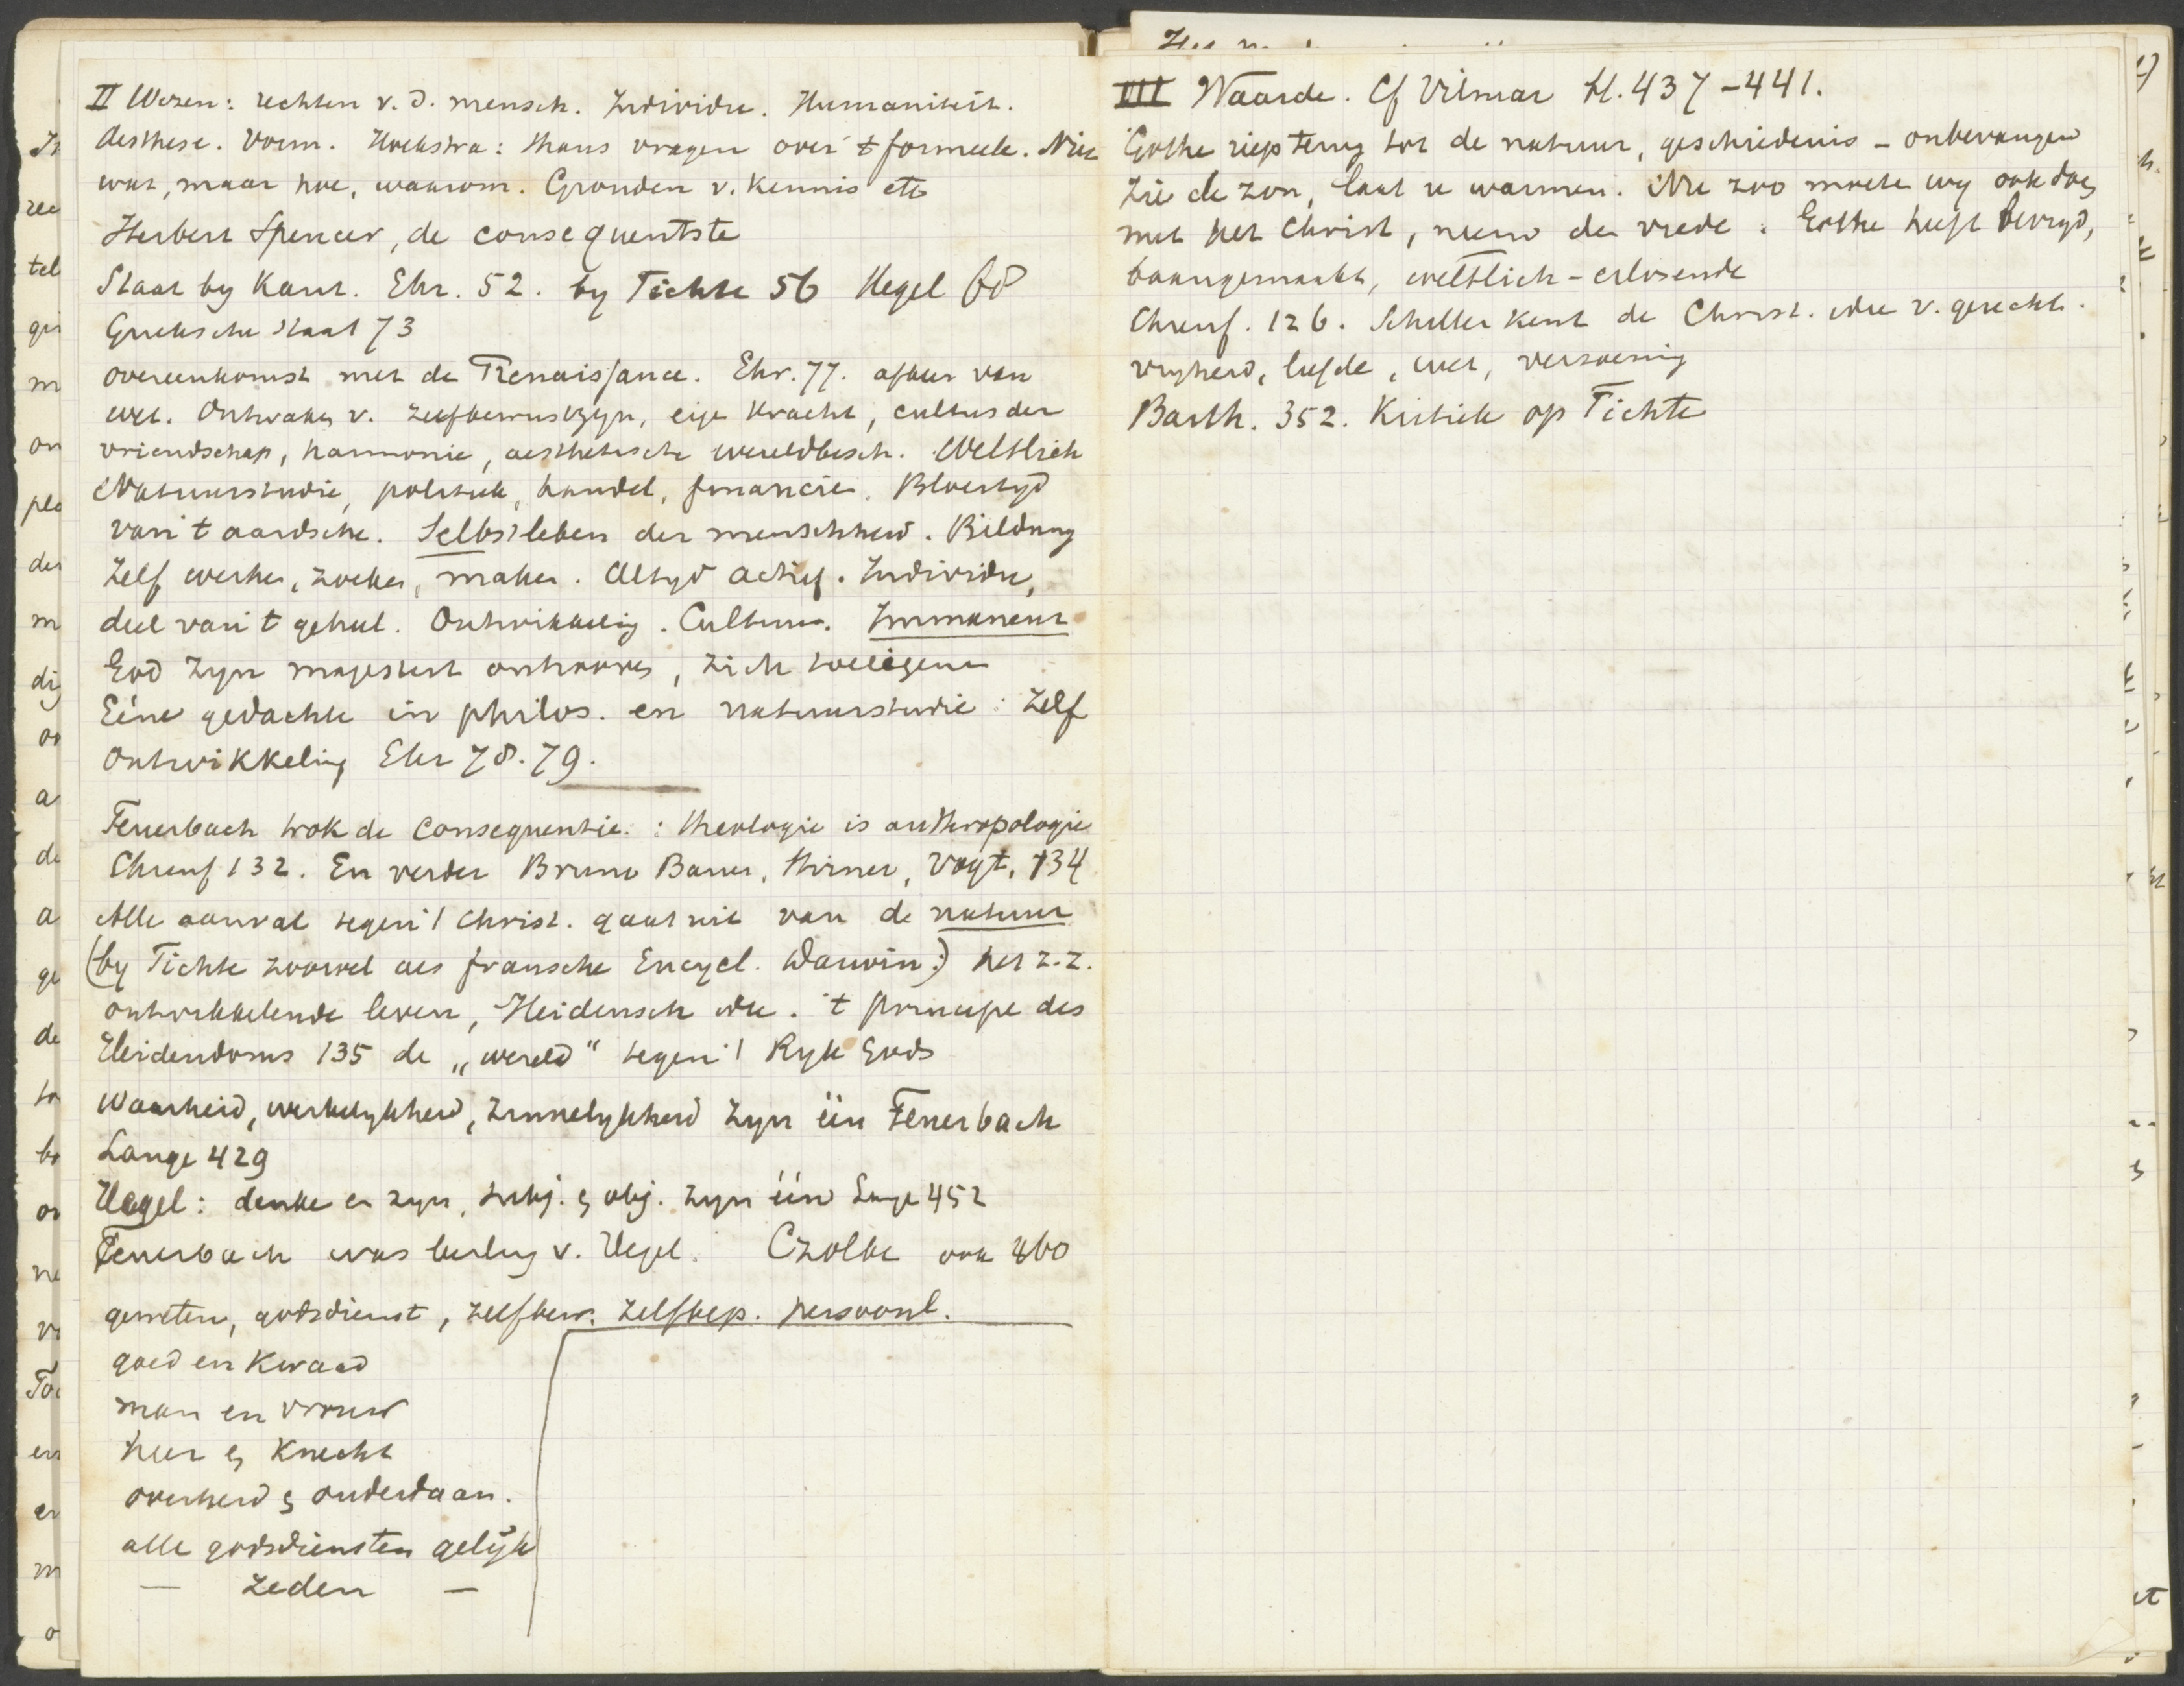 II Wezen: rechten v. d. mensch. Individu. Humaniteit.
Aesthese. Vorm. Hoekstra: thans vragen over 't formeele. Niet
wat, maar hoe, waarom. Gronden v. kennis etc
Herbert Spencer, de consequentste
Staat by Kant. Ehr. 52. by Fichte 56 Hegel 68
Grieksche staat 73
overeenkomst met de Renaissance. Ehr. 77. afkeer van
wet. Ontwaken v. zelfbewustzyn, eigen kracht, cultus der
vriendschap, harmonie, aesthetische wereldbesch. Weltlich
Natuurstudie, politiek, handel, financien. Bloeityd
van 't aardsche. Selbstleben der menschheid. Bildung
Zelf werken, zoeken, maken. Altyd actief. Individu,
deel van 't geheel. Ontwikkeling. Cultuur. Immanent
God zyn majesteit ontrooven, zich toeeigenen
Eéne gedachte in philos. en natuurstudie: Zelf
ontwikkeling Ehr 78. 79.
Feuerbach trok de consequentie: theologie is anthropologie
Ehrenf 132. En verder Bruno Bauer, Stirner, Vogt, 134
Alle aanval tegen 't Christ. gaat uit van de natuur
(by Fichte zoowel als fransche Encycl. Darwin:) het z. z.
ontwikkelende leven, Heidensch idee. 't principe des
Heidendoms 135 de „wereld" tegen 't Ryk Gods
Waarheid, werkelykheid, zinnelykheid zyn één Feuerbach
Lange 429
Hegel: denken en zyn, subj. en obj. zyn één Lange 452
Feuerbach was leerling v. Hegel. Czolbe ook 460
geweten, godsdienst, zelfbew. zelfbep. persoonl.
goed en kwaad
man en vrouw
heer en knecht
overheid en onderdaan.
alle godsdiensten gelijk
— zeden —
III Waarde. Cf Vilmar bl. 437-441.
Göthe riep terug tot de natuur, geschiedenis - onbevangen
Zie de zon, laat u warmen. Nu zoo moeten wy ook doen
met het Christ, neem den vrede. Göthe heeft bevryd,
baangemaakt, weltlich-erlösende
Ehrenf. 126. Schiller kent de Christ. idee v. gerecht.
vryheid, liefde, wet, verzoening
Barth. 352. Kritiek op Fichte